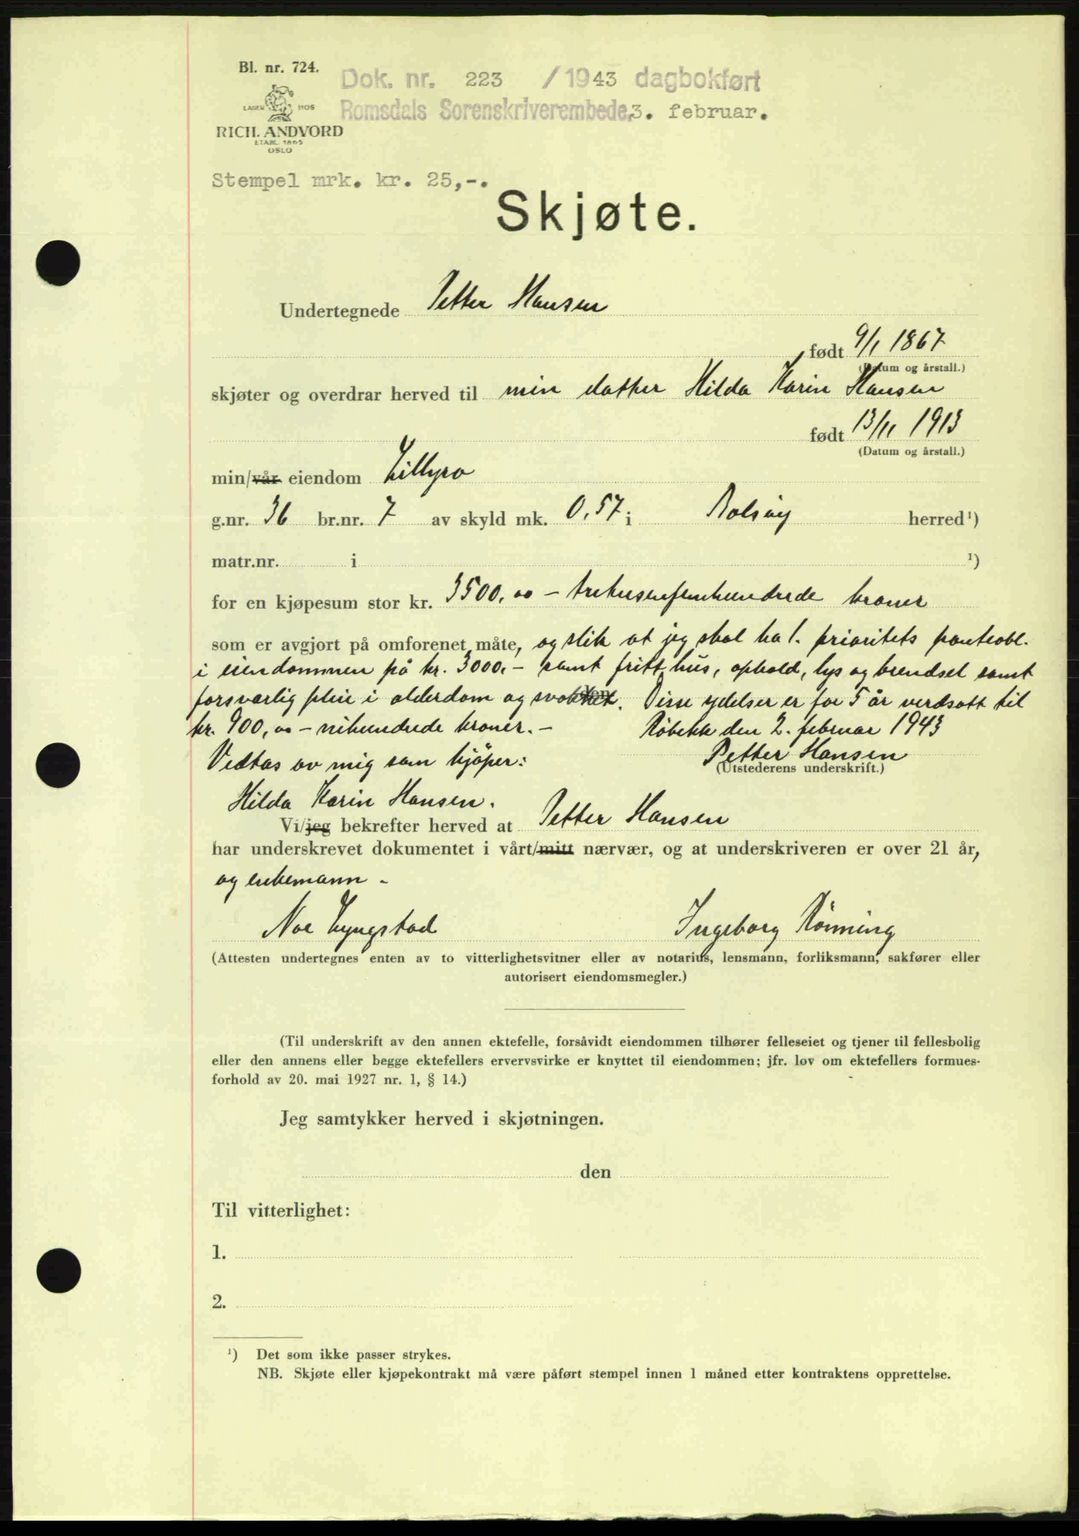 Bl. nr. 724.
Dok. nr. 223 /1943 dagbokført
LAGER HOS
Romsdals Sorenskriverembede, 3. februar.
RICH. ANDVORD
ETABL. 1865
OSLO
Stempel mrk. kr. 25,-.
Skjøte.
Undertegnede Petter Hansen
født 9/1 1867
(Datum og årstall.)
skjøter og overdrar herved til min datter Hilda Karin Hansen
født 13/11 1913
(Datum og årstall.)
min/vår eiendom Lillyro
g.nr. 36 br.nr. 7 av skyld mk. 0,57 i Bolsøy herred¹)
matr.nr. i ¹)
for en kjøpesum stor kr. 3500,00 - tretusenfemhundrede kroner
som er avgjort på omforenet måte, og slik at jeg skal ha 1. prioritets panteobl.
i eiendommen på kr. 3000,- samt fritt hus, ophold, lys og brendsel samt
forsvarlig pleie i alderdom og . Disse ydelser er for 5 år verdsatt til
kr. 900,00 - nihundrede kroner. - Røbekk den 2. februar 1943
Vedtas av mig som kjøper: Petter Hansen
(Utstederens underskrift.)
Hilda Karin Hansen.
Vi/jeg bekrefter herved at Petter Hansen
har underskrevet dokumentet i vårt/mitt nærvær, og at underskriveren er over 21 år,
og enkemann -
Noe Lyngstad Ingeborg Rønning
(Attesten undertegnes enten av to vitterlighetsvitner eller av notarius, lensmann, forliksmann, sakfører eller
autorisert eiendomsmegler.)
(Til underskrift av den annen ektefelle, forsåvidt eiendommen tilhører felleseiet og tjener til fellesbolig
eller den annens eller begge ektefellers ervervsvirke er knyttet til eiendommen; jfr. lov om ektefellers formues-
forhold av 20. mai 1927 nr. 1, § 14.)
Jeg samtykker herved i skjøtningen.
den
Til vitterlighet:
1.
2.
¹) Det som ikke passer strykes.
NB. Skjøte eller kjøpekontrakt må være påført stempel innen 1 måned etter kontraktens opprettelse.